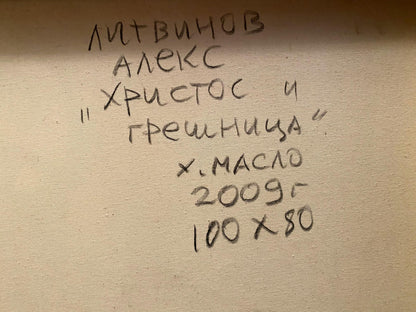 ЛИТВИНОВ
АЛЕКС
„ХРИСТОС И
ГРЕШНИЦА“
Х. МАСЛО
2009г
100 X 80